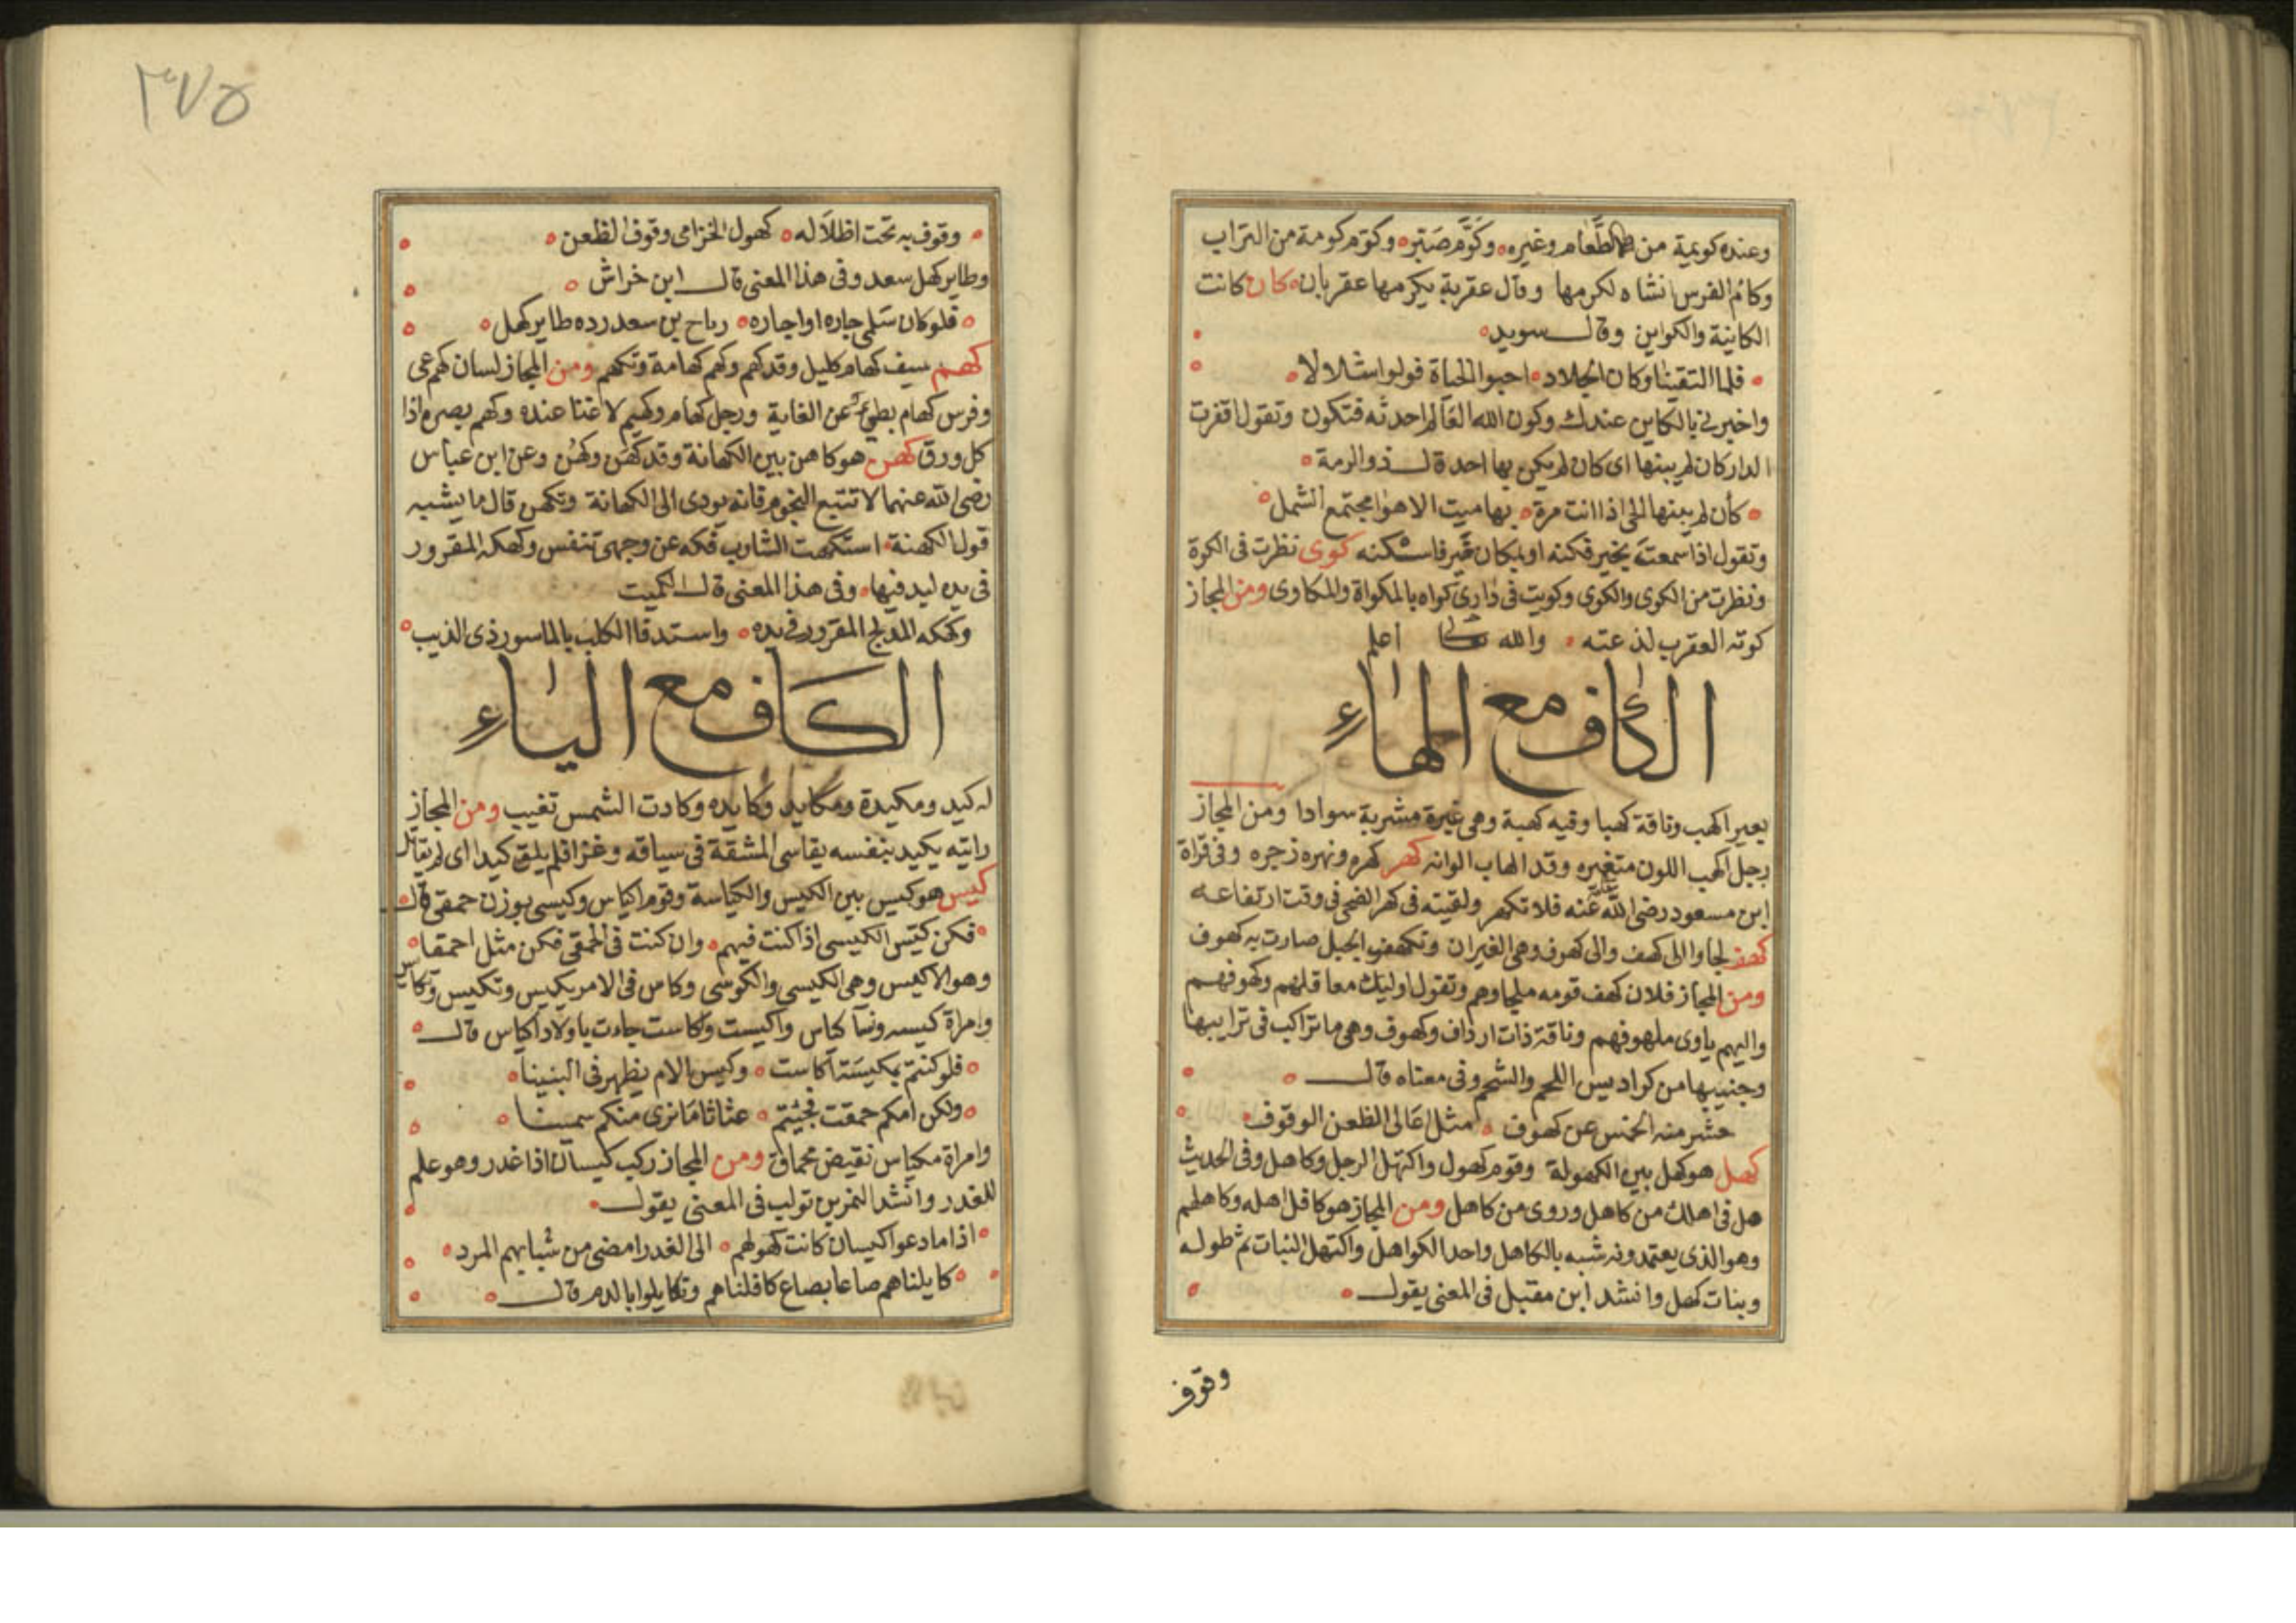 وعنده كويمة من الطعام وغيره وكوم صبر وكوم كومة من التراب
وكام الفرس انشاه لكرمها وقال عقربة يكومها عقربان كان كانت
الكانية والكواين وقال سويد
فلما التقينا وكان الجلاد احبوا الحياة فولوا شلالا
واخبرني بالكاين عندك وكون الله العالم احدثه فتكون وتقول اقفرت
الدار كان لم يبنها اى كان لم يكن بها احد قال ذو الرمة
كأن لم يبنها الحى اذا انت مرة بها ميت الاهوا مجتمع الشمل
وتقول اذا سمعت بخير فكنه او بمكان خير فاسكنه كوى نظرت فى الكوة
ونظرت من الكوى والكوى وكويت فى دارى كواه بالمكواة والمكاوى ومن المجاز
كوته العقرب لذعته والله تعالى اعلم
الكاف مع الهاء
بعير اكهب وناقة كهبا وفيه كهبة وهى غبرة مشربة سوادا ومن المجاز
رجل اكهب اللون متغيره وقد الهاب الوانه كهر كهره ونهره زجره وفى قراة
ابن مسعود رضى الله عنه فلا تكهر ولقيته فى كهر الضحى فى وقت ارتفاعه
كهف لجاوا الى كهف والى كهوف وهى الغيران وتكهف الجبل صارت به كهوف
ومن المجاز فلان كهف قومه ملجاوهم وتقول اوليك معاقلهم وكهوفهم
واليهم ياوى ملهوفهم وناقة ذات ارداف وكهوف وهى ما تراكب فى ترايبها
وجنبيها من كراديس اللحم والشحم وفى معناه قال
حشر منه الخنس عن كهوف مثل عالى الظعن الوقوف
كهل هو كهل بين الكهولة وقوم كهول واكتهل الرجل وكاهل وفى الحديث
هل فى اهلك من كاهل وروى من كاهل ومن المجاز هو كافل اهله وكاهلهم
وهو الذى يعتمدونه شبه بالكاهل واحد الكواهل واكتهل النبات تم طوله
ونبات كهل وانشد ابن مقبل فى المعنى يقول
وقوف
٣٧٥
وقوف به تحت اظلاله كهول الخزامى وقوف الظعن
وطاير كهل سعد وفى هذا المعنى قال ابن خراش
فلو كان سلمى جاره او اجاره رباح بن سعد رده طاير كهل
كهم سيف كهام كليل وقد كهم وكهم كهامة وتكهم ومن المجاز لسان كهم عى
وفرس كهام بطئ عن الغاية ورجل كهام وكهيم لا غنا عنده وكهم بصره اذا
كل ورق كهن هو كاهن بين الكهانة وقد كهن وكهن وعن ابن عباس
رضى الله عنهما لا تتبع النجوم فانه يودى الى الكهانة وتكهن قال ما يشبه
قول الكهنة استكهت الشارب فكه عن وجهى تنفس وكهكه المقرور
فى يده ليدفيها وفى هذا المعنى قال الكميت
وكهكه المدلج المقرور فى يده واستدفا الكلب بالماسور ذى الذيب
الكاف مع الياء
له كيد ومكيدة ومكايد وكايده وكادت الشمس تغيب ومن المجاز
رايته يكيد بنفسه يقاسى المشقة فى سياقه وغزا فلم يلق كيدا اى لم يقاتل
كيس هو كيس بين الكيس والكياسة وقوم اكياس وكيسى بوزن حمقى قال
فكن كيس الكيسى اذا كنت فيهم وان كنت فى الحمقى فكن مثل احمقا
وهو الاكيس وهى الكيسى والكوسى وكاس فى الامر يكيس وتكيس وتكايس
وامراة كيسه ونسا كياس واكيست واكاست جاءت باولاد اكياس قال
فلو كنتم بمكيسة اكاست وكيس الام يظهر فى البنينا
ولكن امكم حمقت فجيتم عثاثا ما نرى منكم سمينا
وامراة مكياس نقيض محماق ومن المجاز ركب كيسان اذا غدر وهو علم
للغدر وانشد النمر بن تولب فى المعنى يقول
اذا ما دعوا كيسان كانت كهولهم الى الغدر امضى من شبابهم المرد
كايلناهم صاعا بصاع كافلناهم وتكايلوا بالدم قال